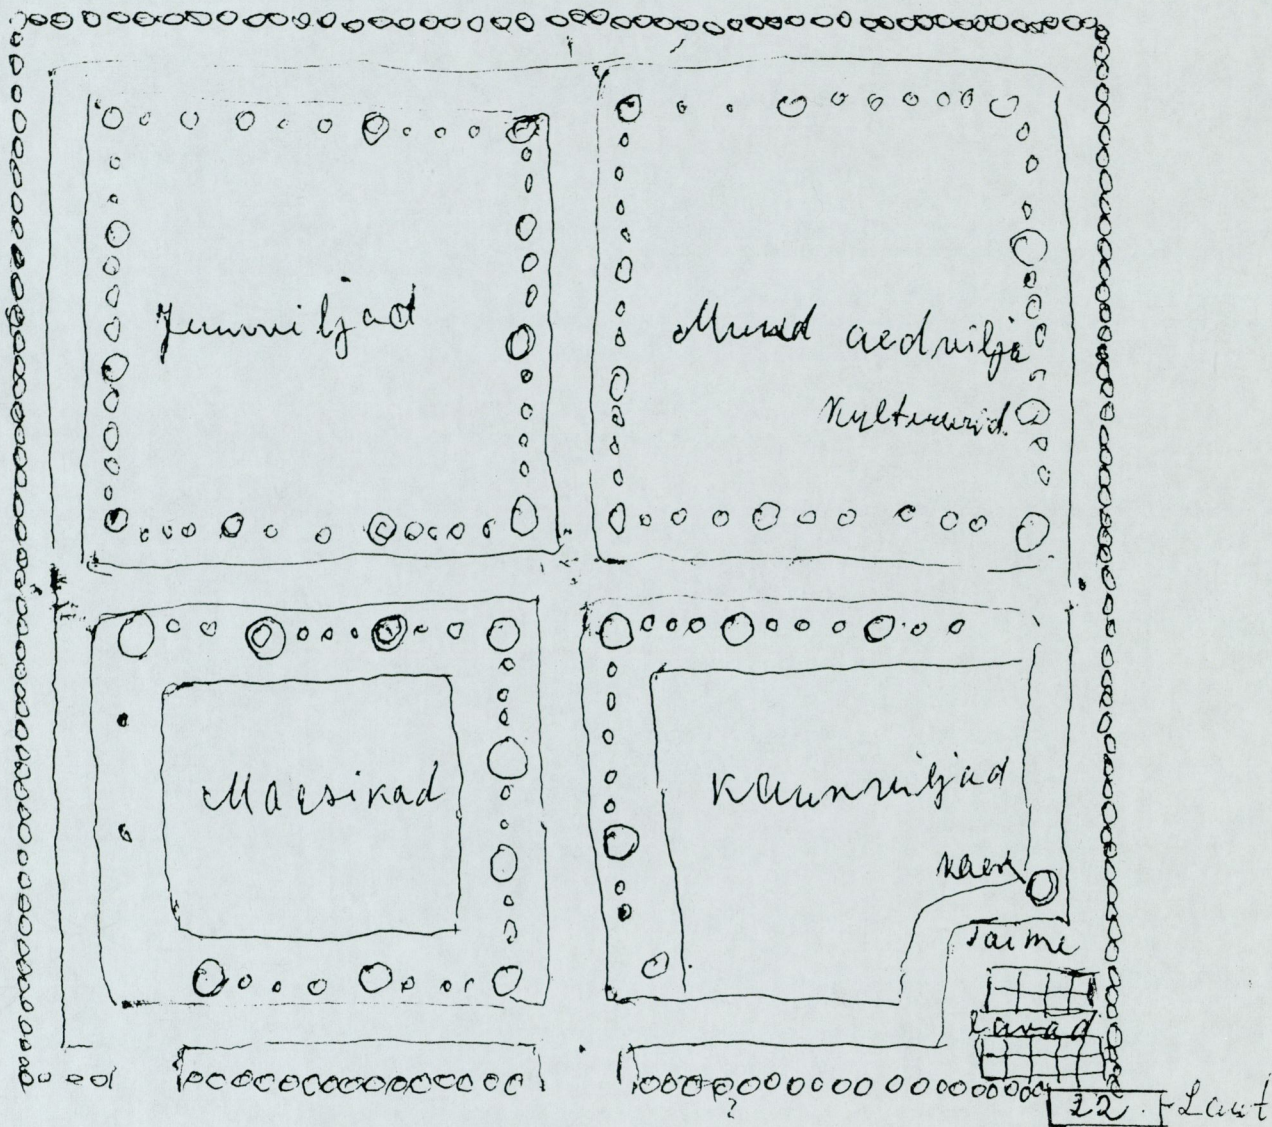 Juurviljad
Muud aedvilja
kultuurid.
Maasikad
Kaunviljad
kaev
Taime
lavad
22.
Laut